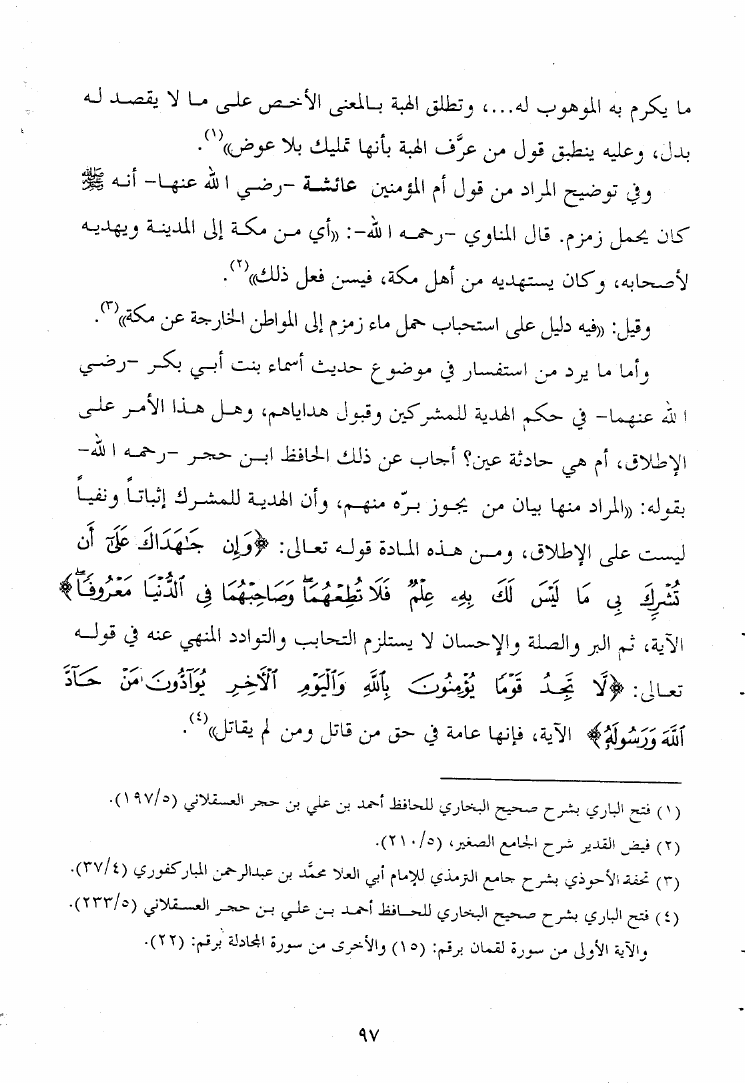 ما يكرم به الموهوب له...، وتطلق الهبة بالمعنى الأخص على ما لا يقصد له
بدل، وعليه ينطبق قول من عرَّف الهبة بأنها تمليك بلا عوض»(١).
وفي توضيح المراد من قول أم المؤمنين عائشة -رضي الله عنها- أنه ﷺ
كان يحمل زمزم. قال المناوي -رحمه الله-: «أي من مكة إلى المدينة ويهديه
لأصحابه، وكان يستهديه من أهل مكة، فيسن فعل ذلك»(٢).
وقيل: «فيه دليل على استحباب حمل ماء زمزم إلى المواطن الخارجة عن مكة»(٣).
وأما ما يرد من استفسار في موضوع حديث أسماء بنت أبي بكر -رضي
الله عنهما- في حكم الهدية للمشركين وقبول هداياهم، وهل هذا الأمر على
الإطلاق، أم هي حادثة عين؟ أجاب عن ذلك الحافظ ابن حجر -رحمه الله-
بقوله: «المراد منها بيان من يجوز برّه منهم، وأن الهدية للمشرك إثباتاً ونفياً
ليست على الإطلاق، ومن هذه المادة قوله تعالى: ﴿وَإِن جَٰهَدَاكَ عَلَىٰٓ أَن
تُشْرِكَ بِى مَا لَيْسَ لَكَ بِهِۦ عِلْمٌ فَلَا تُطِعْهُمَا ۖ وَصَاحِبْهُمَا فِى ٱلدُّنْيَا مَعْرُوفًا ۖ﴾
الآية، ثم البر والصلة والإحسان لا يستلزم التحابب والتوادد المنهي عنه في قوله
تعالى: ﴿لَّا تَجِدُ قَوْمًا يُؤْمِنُونَ بِٱللَّهِ وَٱلْيَوْمِ ٱلْأَخِرِ يُوَآدُّونَ مَنْ حَآدَّ
ٱللَّهَ وَرَسُولَهُۥ﴾ الآية، فإنها عامة في حق من قاتل ومن لم يقاتل»(٤).
(١) فتح الباري بشرح صحيح البخاري للحافظ أحمد بن علي بن حجر العسقلاني (١٩٧/٥).
(٢) فيض القدير شرح الجامع الصغير، (٢١٠/٥).
(٣) تحفة الأحوذي بشرح جامع الترمذي للإمام أبي العلا محمَّد بن عبدالرحمن المباركفوري (٣٧/٤).
(٤) فتح الباري بشرح صحيح البخاري للحافظ أحمد بن علي بن حجر العسقلاني (٢٣٣/٥).
والآية الأولى من سورة لقمان برقم: (١٥) والأخرى من سورة المجادلة برقم: (٢٢).
٩٧